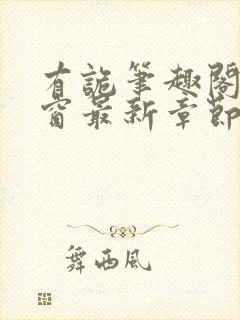 有詭筆趣閣
窗最新章節
舞西風